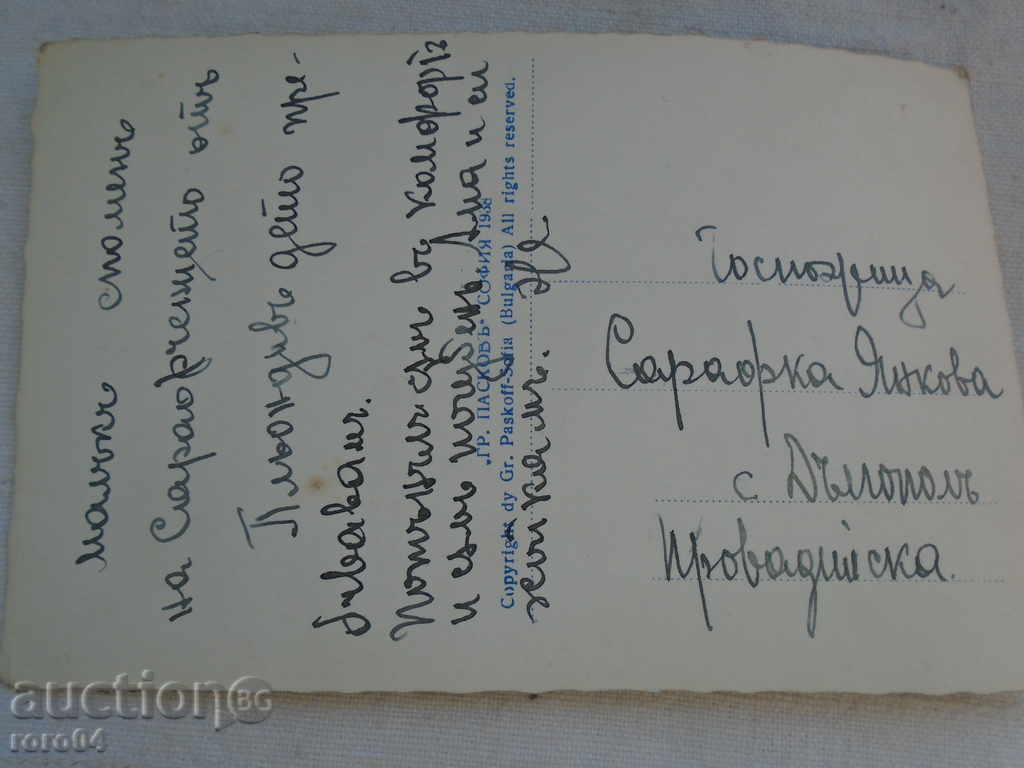 малъкъ споменъ
на Сарафчещето отъ
Пловдивъ дето пре-
бивавамъ.
Потънилъ съм въ комфортъ
и съмъ погубенъ Ама и си
желикамъ. Не
„ГР. ПАСКОВЪ" СОФИЯ 1938
Copyright dy Gr. Paskoff-Sofia (Bulgaria) All rights reserved.
Госпожица
Сарафка Янкова
с Дългополъ
Провадийска.
auctionBG
roro04